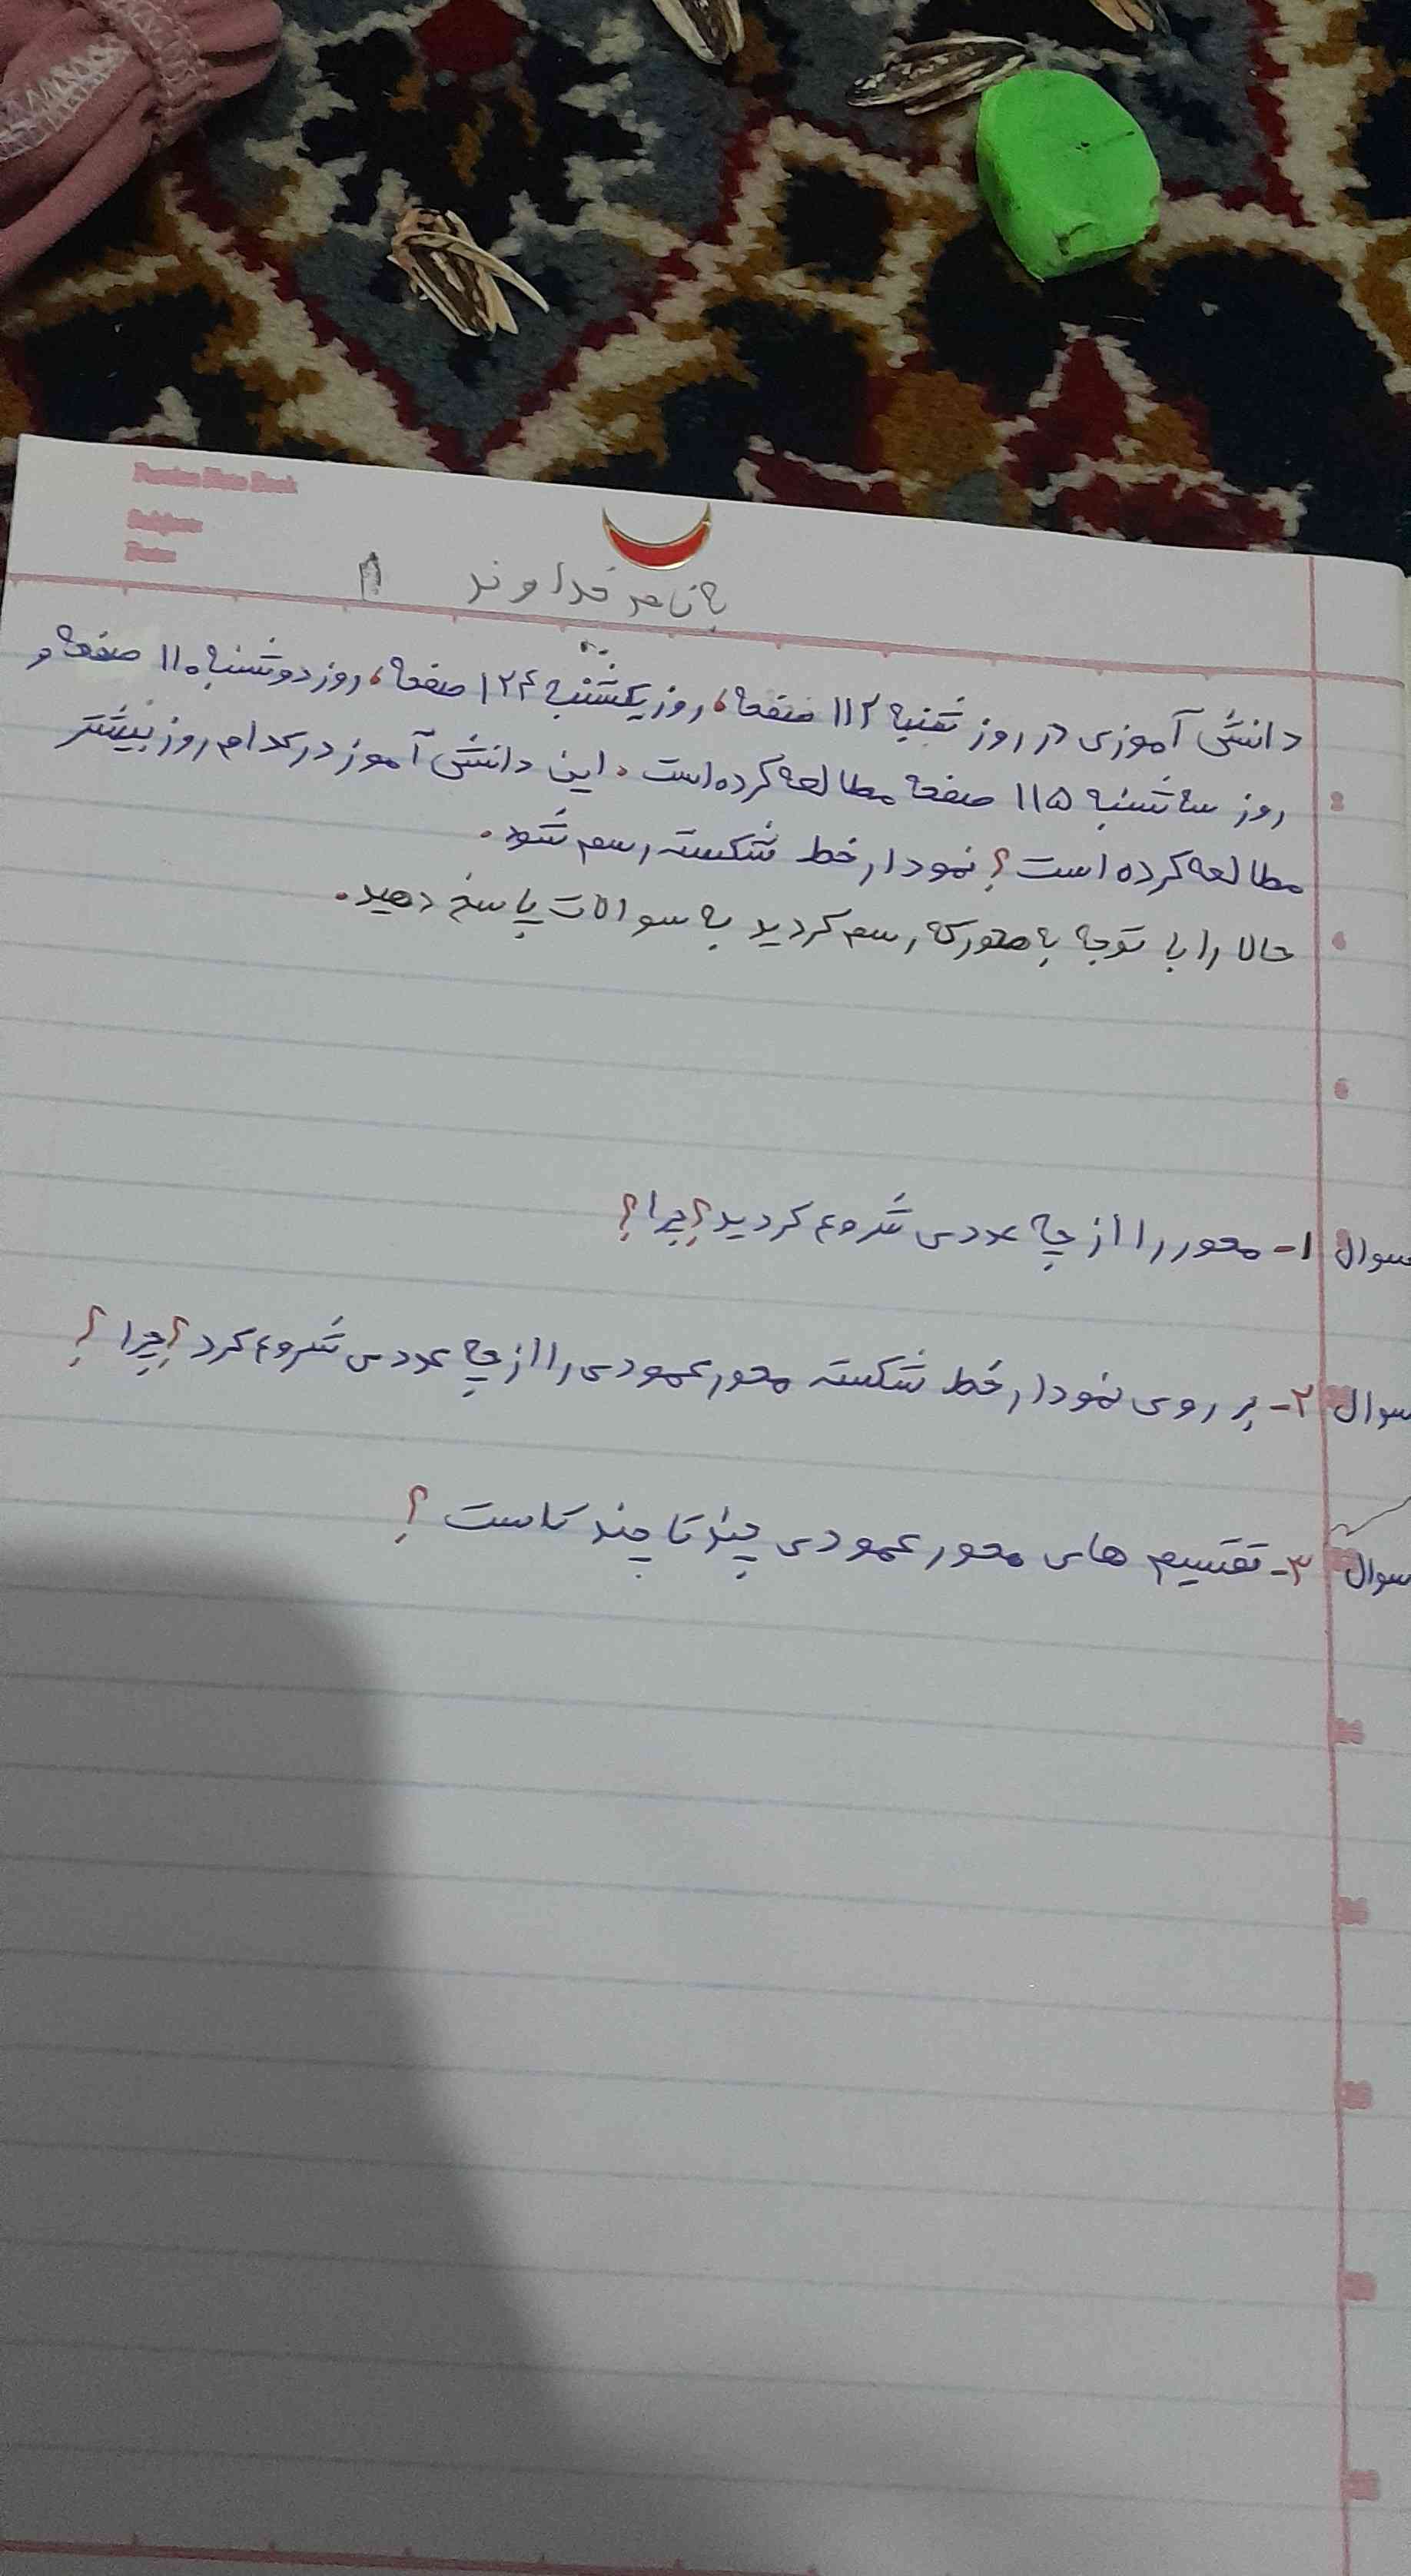 با نام خداوند
دانش آموزی در روز شنبه ۱۱۲ صفحه، روز یکشنبه ۱۲۴ صفحه، روز دوشنبه ۱۱۰ صفحه و
روز سه شنبه ۱۱۵ صفحه مطالعه کرده است. این دانش آموز در کدام روز بیشتر
مطالعه کرده است؟ نمودار خط شکسته رسم شود.
حالا را با توجه به محور که رسم کردید به سوالات پاسخ دهید.
سوال ۱- محور را از چه عددی شروع کردید؟ چرا؟
سوال ۲- بر روی نمودار خط شکسته محور عمودی را از چه عددی شروع کرد؟ چرا؟
سوال ۳- تقسیم های محور عمودی چند تا چند تاست؟